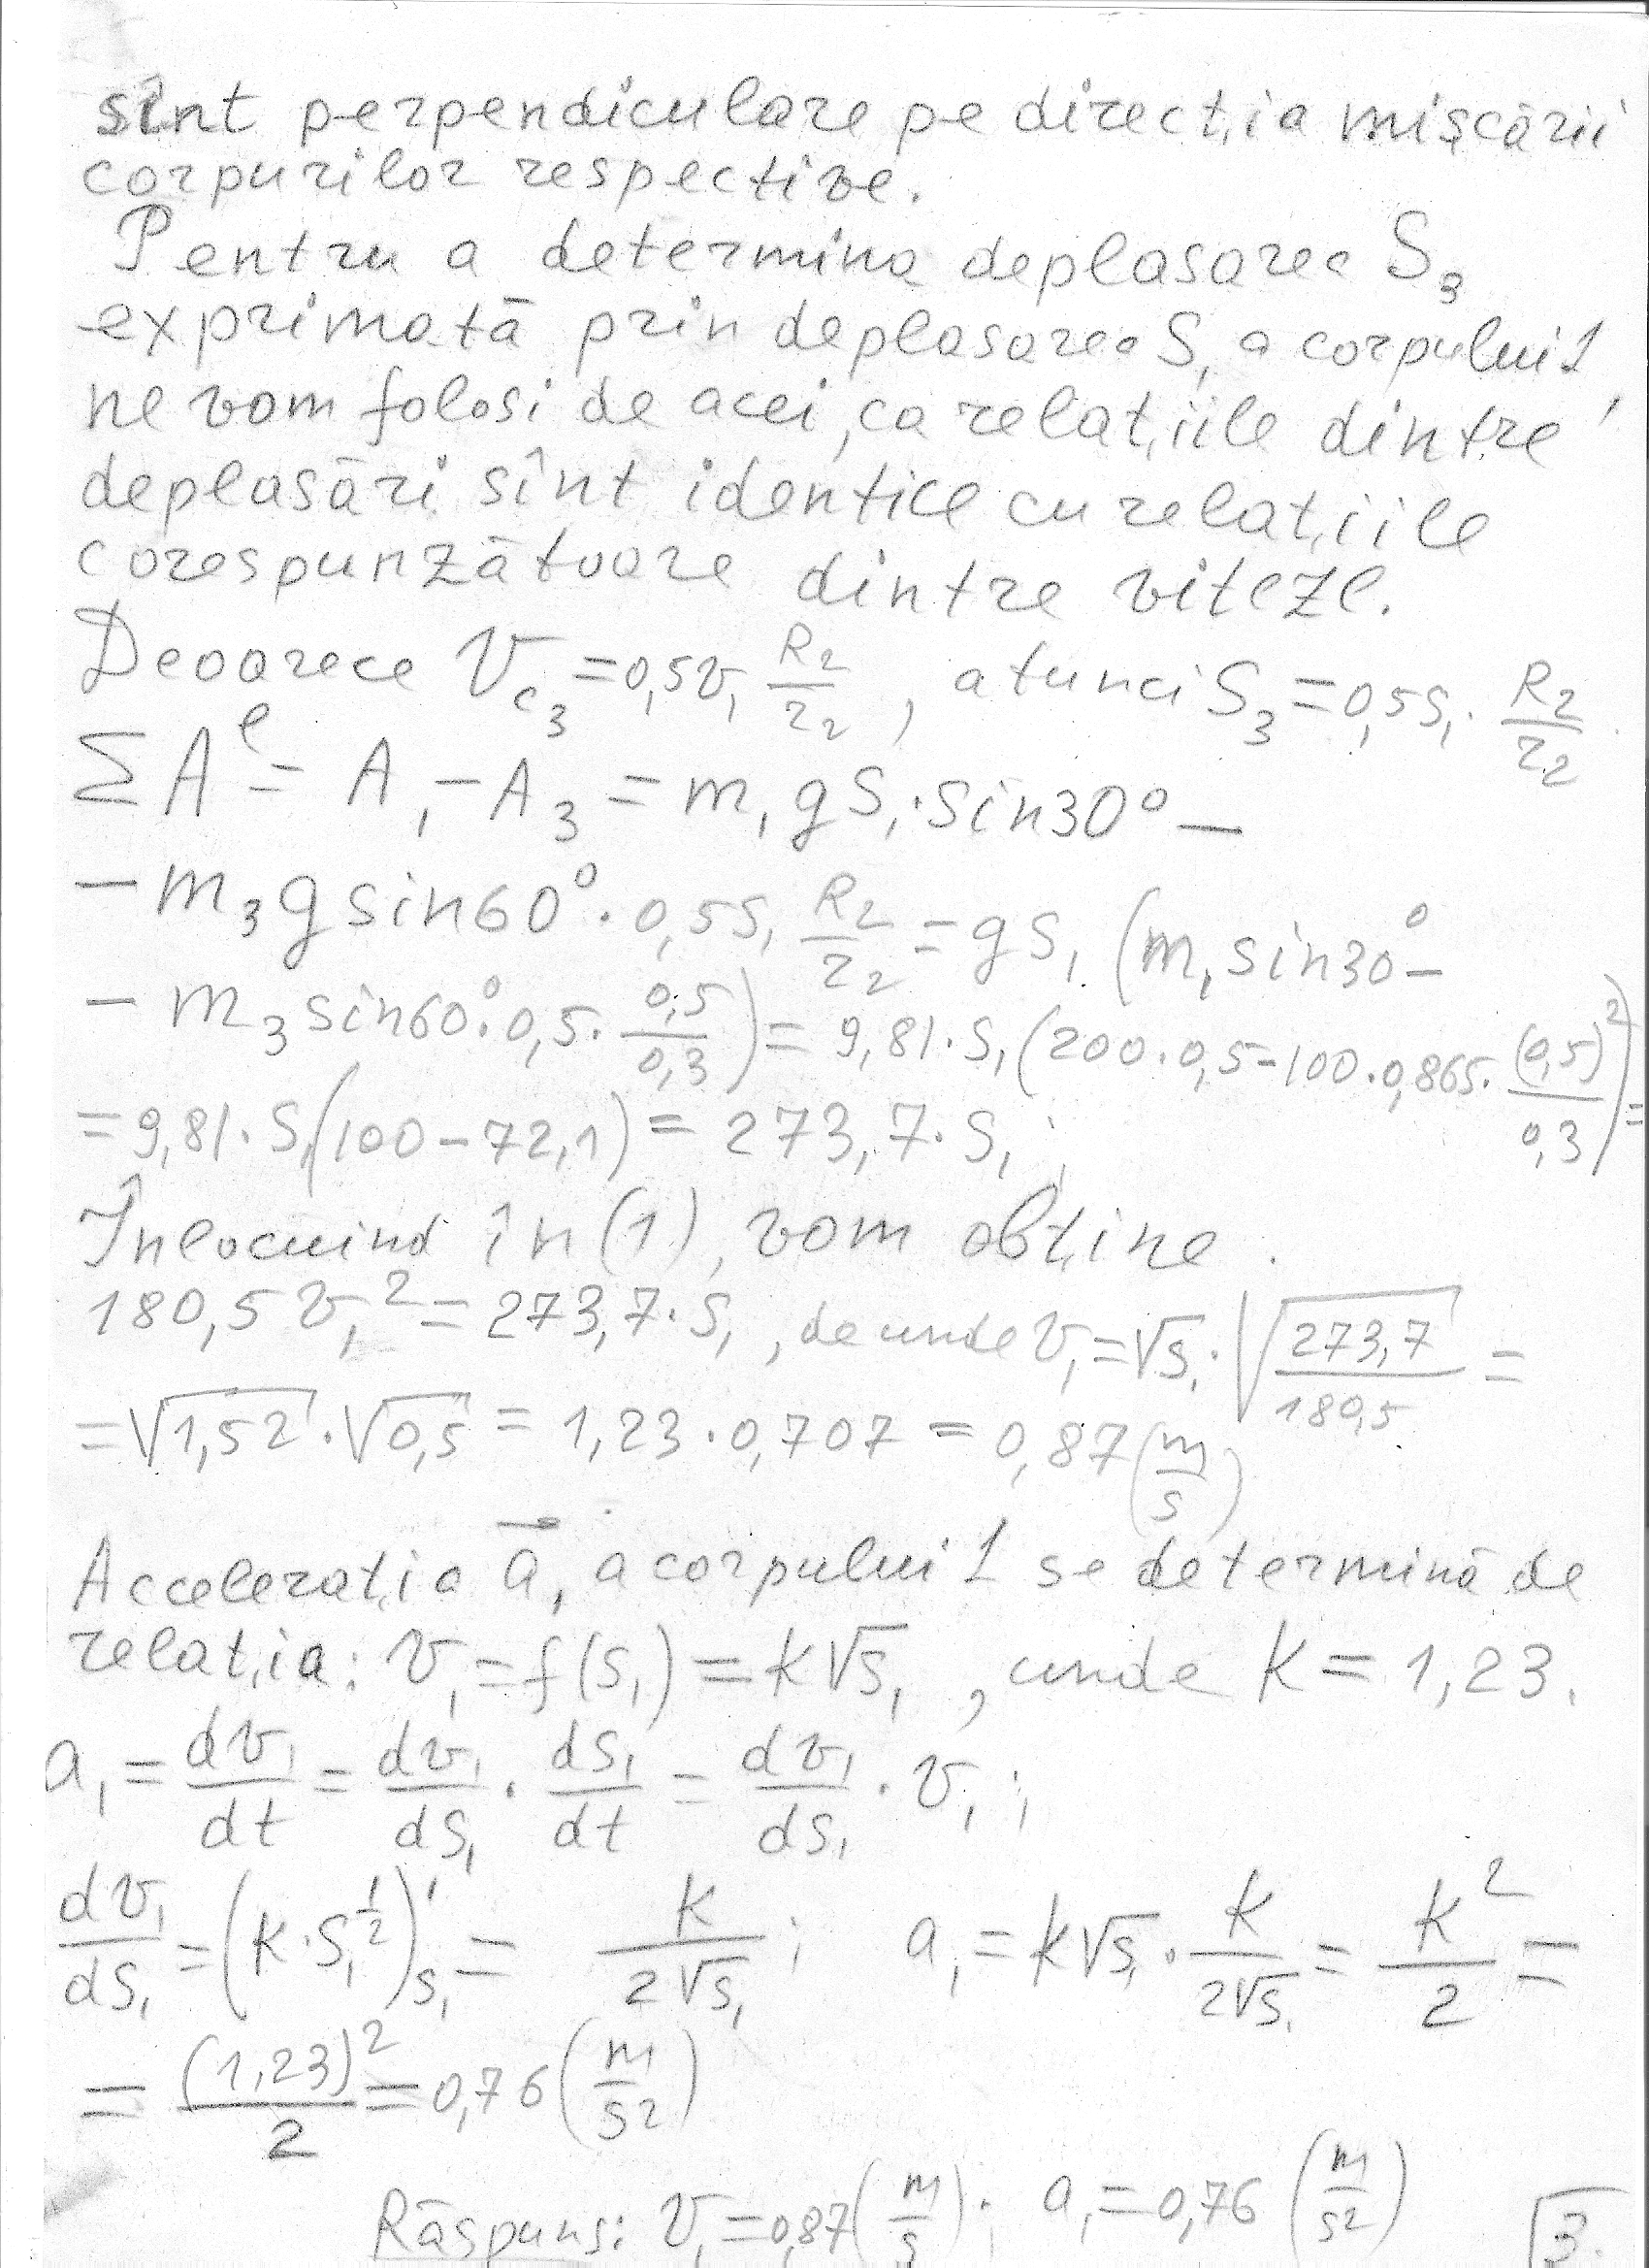 sînt perpendiculare pe direcția mișcării
corpurilor respective.
Pentru a determina deplasarea S₃
exprimată prin deplasarea S₁ a corpului 1,
ne vom folosi de acei, ca relațiile dintre
deplasări sînt identice cu relațiile
corespunzătoare dintre viteze.
Deoarece V_c₃ = 0,5v₁ R₂/r₂, atunci S₃ = 0,5S₁ · R₂/r₂
ΣAᵉ = A₁ - A₃ = m₁gS₁·sin30° -
- m₃g sin60° · 0,5S₁ R₂/r₂ = gS₁ (m₁ sin30° -
- m₃ sin60° · 0,5 · 0,5/0,3) = 9,81 · S₁ (200 · 0,5 - 100 · 0,865 · (0,5)²/0,3) =
= 9,81 · S₁(100 - 72,1) = 273,7 · S₁;
Înlocuind în (1), vom obține.
180,5 v₁² = 273,7 · S₁, de unde v₁ = √S₁ · √(273,7/180,5) =
= √1,52 · √0,5 = 1,23 · 0,707 = 0,87 (m/s)
Accelerația a⃗₁ a corpului 1 se determină de
relația: v₁ = f(s₁) = k√s₁, unde K = 1,23.
a₁ = dv₁/dt = dv₁/ds₁ · ds₁/dt = dv₁/ds₁ · v₁;
dv₁/ds₁ = (K · S₁^(1/2))'_S₁ = K/(2√S₁); a₁ = k√S₁ · K/(2√S₁) = K²/2 =
= (1,23)²/2 = 0,76 (m/s²)
Răspuns: V₁ = 0,87 (m/s); a₁ = 0,76 (m/s²) 3.